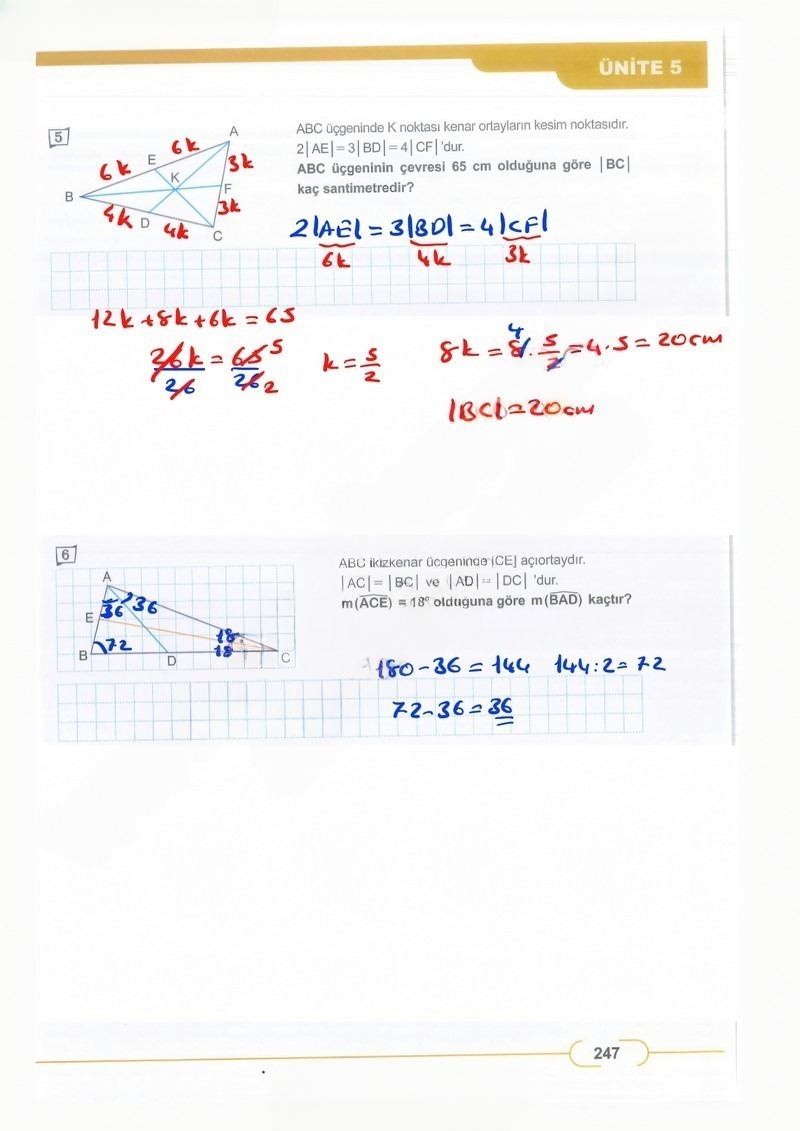 ÜNİTE 5
5
ABC üçgeninde K noktası kenar ortayların kesim noktasıdır.
2|AE|=3|BD|=4|CF|'dur.
ABC üçgeninin çevresi 65 cm olduğuna göre |BC|
kaç santimetredir?
A
6k
E
6k
K
3k
F
B
3k
4k
D
4k
C
2|AE| = 3|BD| = 4|CF|
6k 4k 3k
12k + 8k + 6k = 65
26k = 65 5
26 26 2
k = 5/2
8k = 8 4 . 5/2 = 4.5 = 20cm
|BC| = 20cm
6
ABC ikizkenar üçgeninde [CE] açıortaydır.
|AC|= |BC| ve |AD|= |DC| 'dur.
m(ACE) = 18° olduğuna göre m(BAD) kaçtır?
A
36
36
E
72
18
18
B
D
C
180 - 36 = 144 144:2 = 72
72 - 36 = 36
247